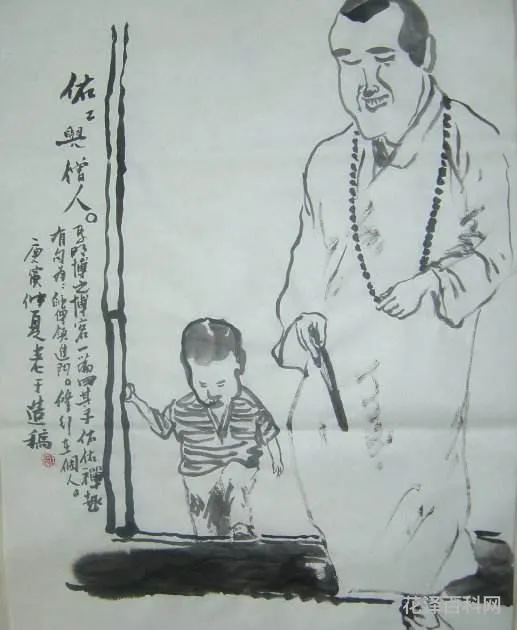 佑々與僧人。
博之博客一篇其子佑佑禪趣
有句為：師傅領進門。修行在個人。
庚寅仲夏老于造稿
花泽百科网